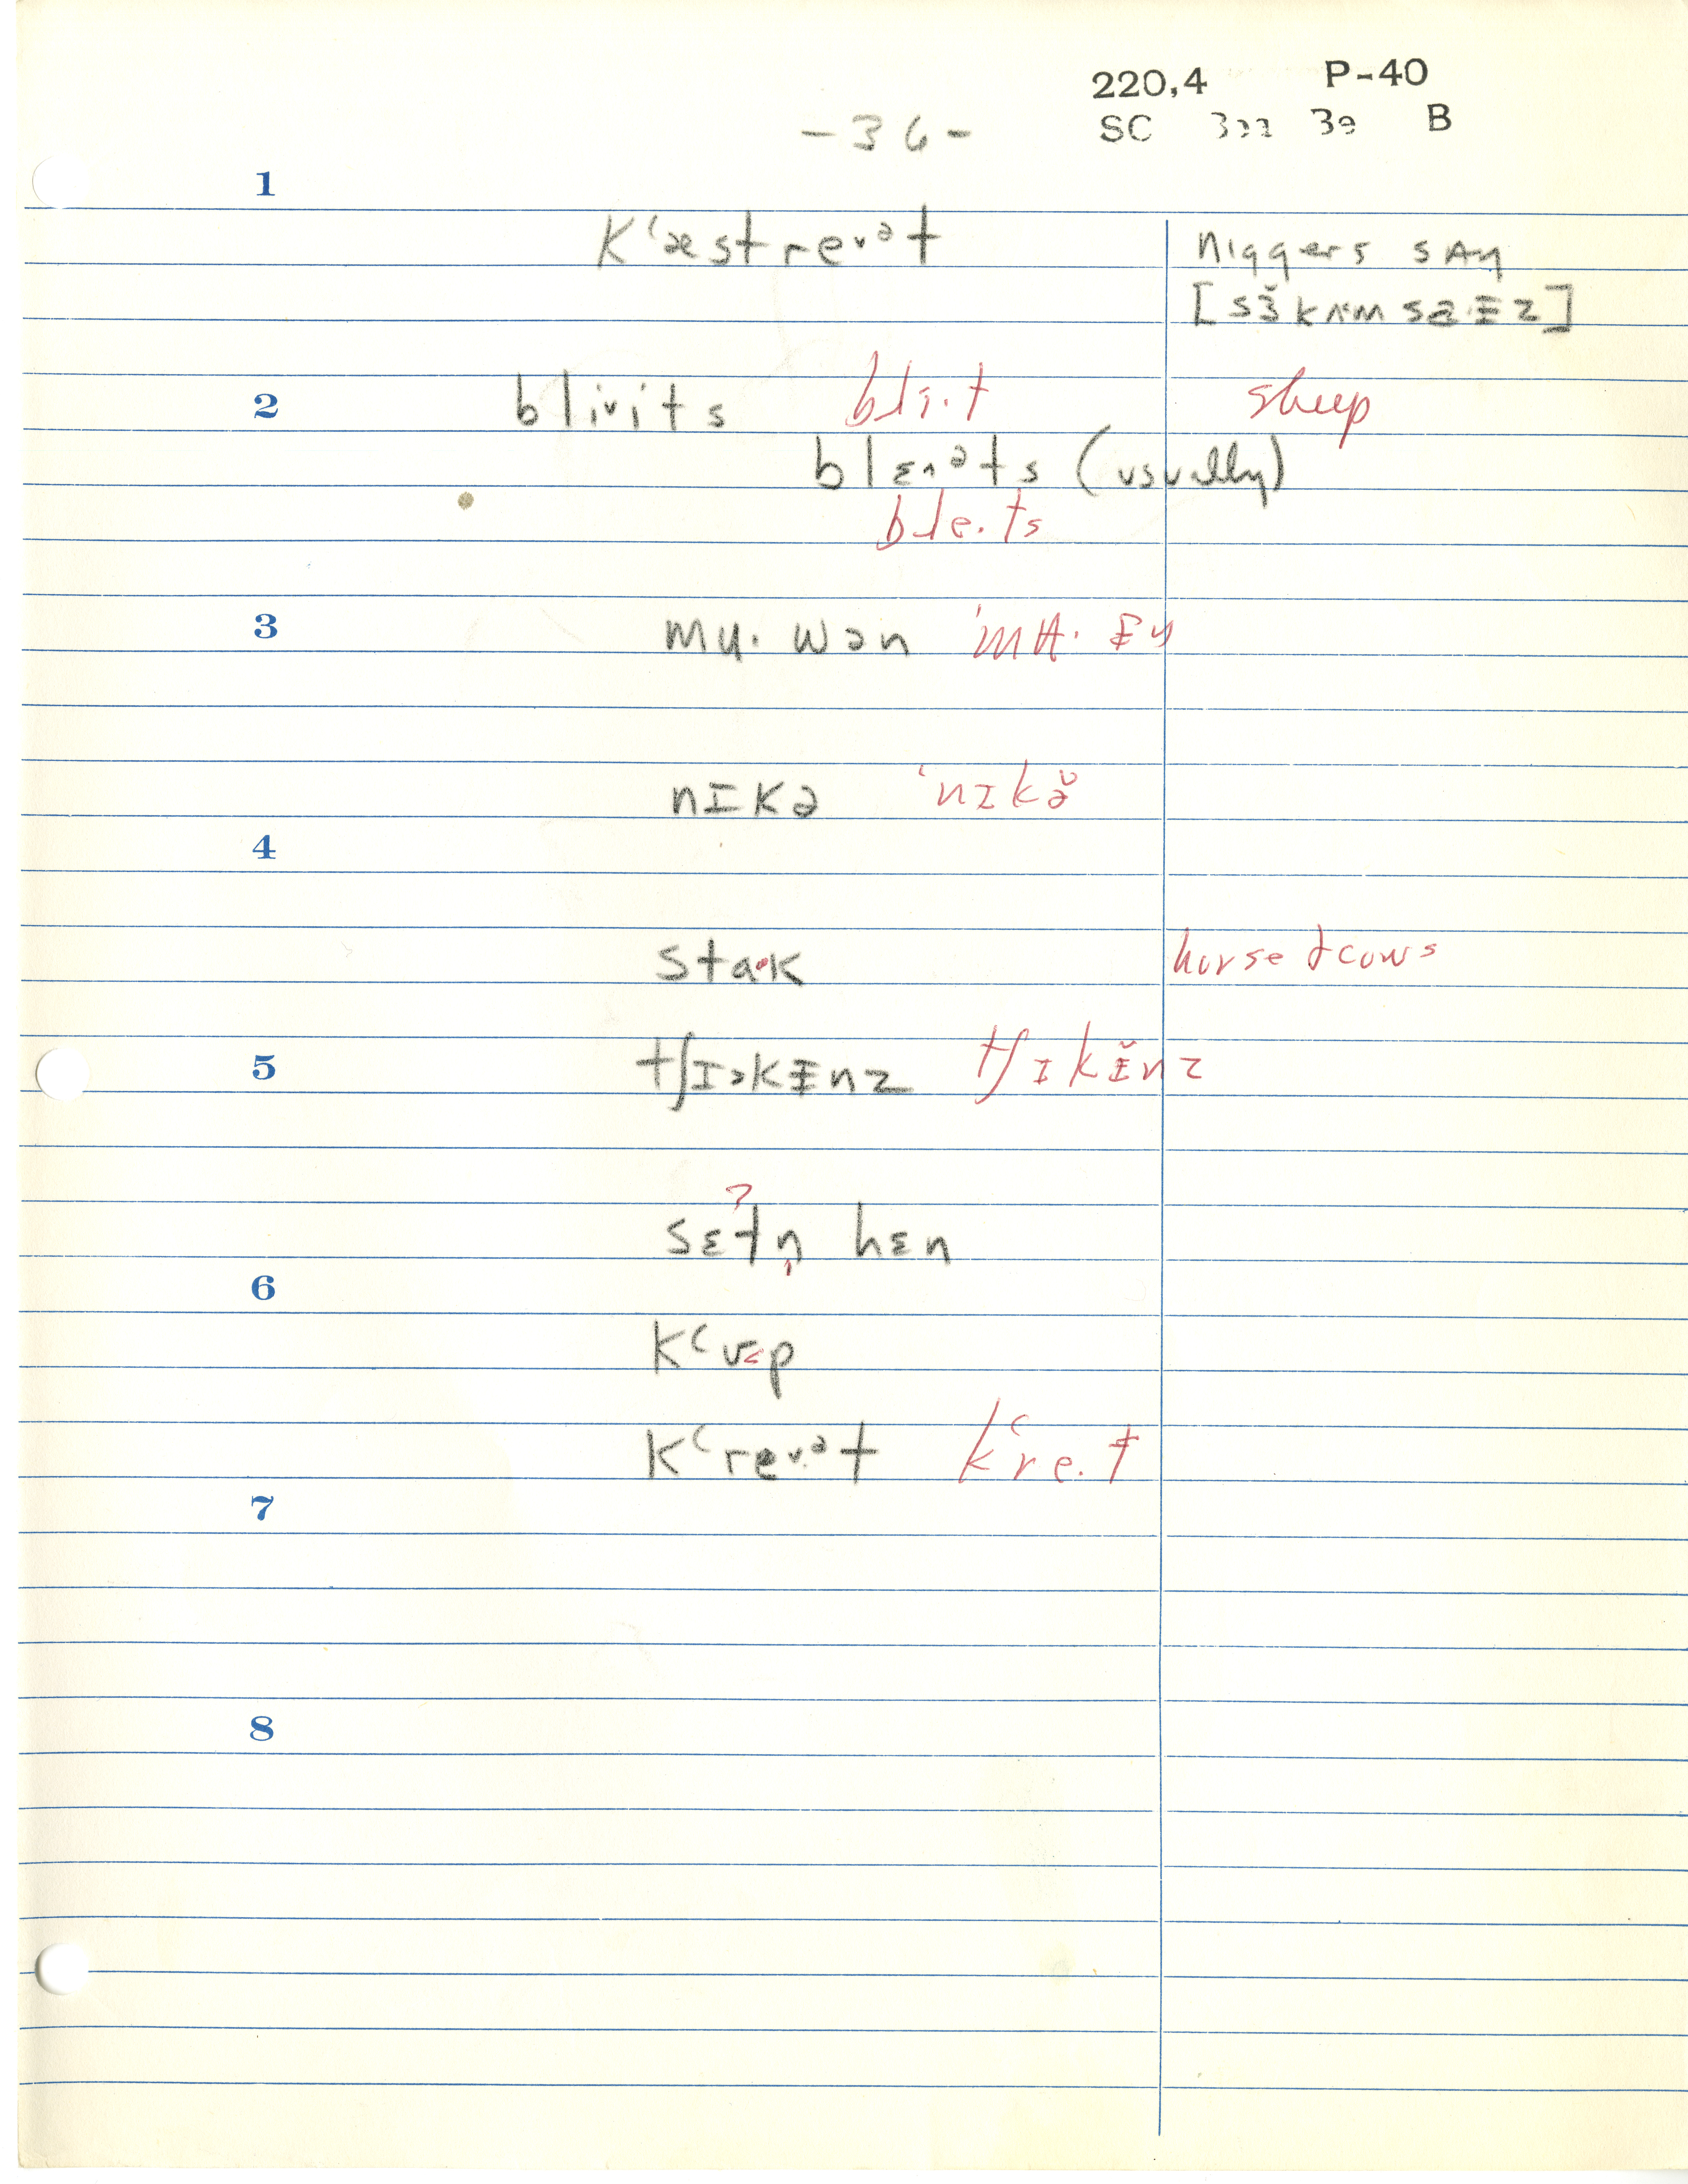 220,4 P-40
-36- SC B
1
kʻæstreᵛᵊt niggers say
[sɜ̆kʌmsaᵻz]
2 blivits bli·t sheep
blɛᴧᵊts (usually)
ble·ts
3 mɑ·wən
nɪkə ˈnɪkə̆
4
stɑ·k horse & cows
5 tʃɪəkᵻnz tʃɪkᵻ̆nz
sɛtn̩ hɛn
6
kʻʊp
kʻreᵛᵊt kʻre·t
7
8